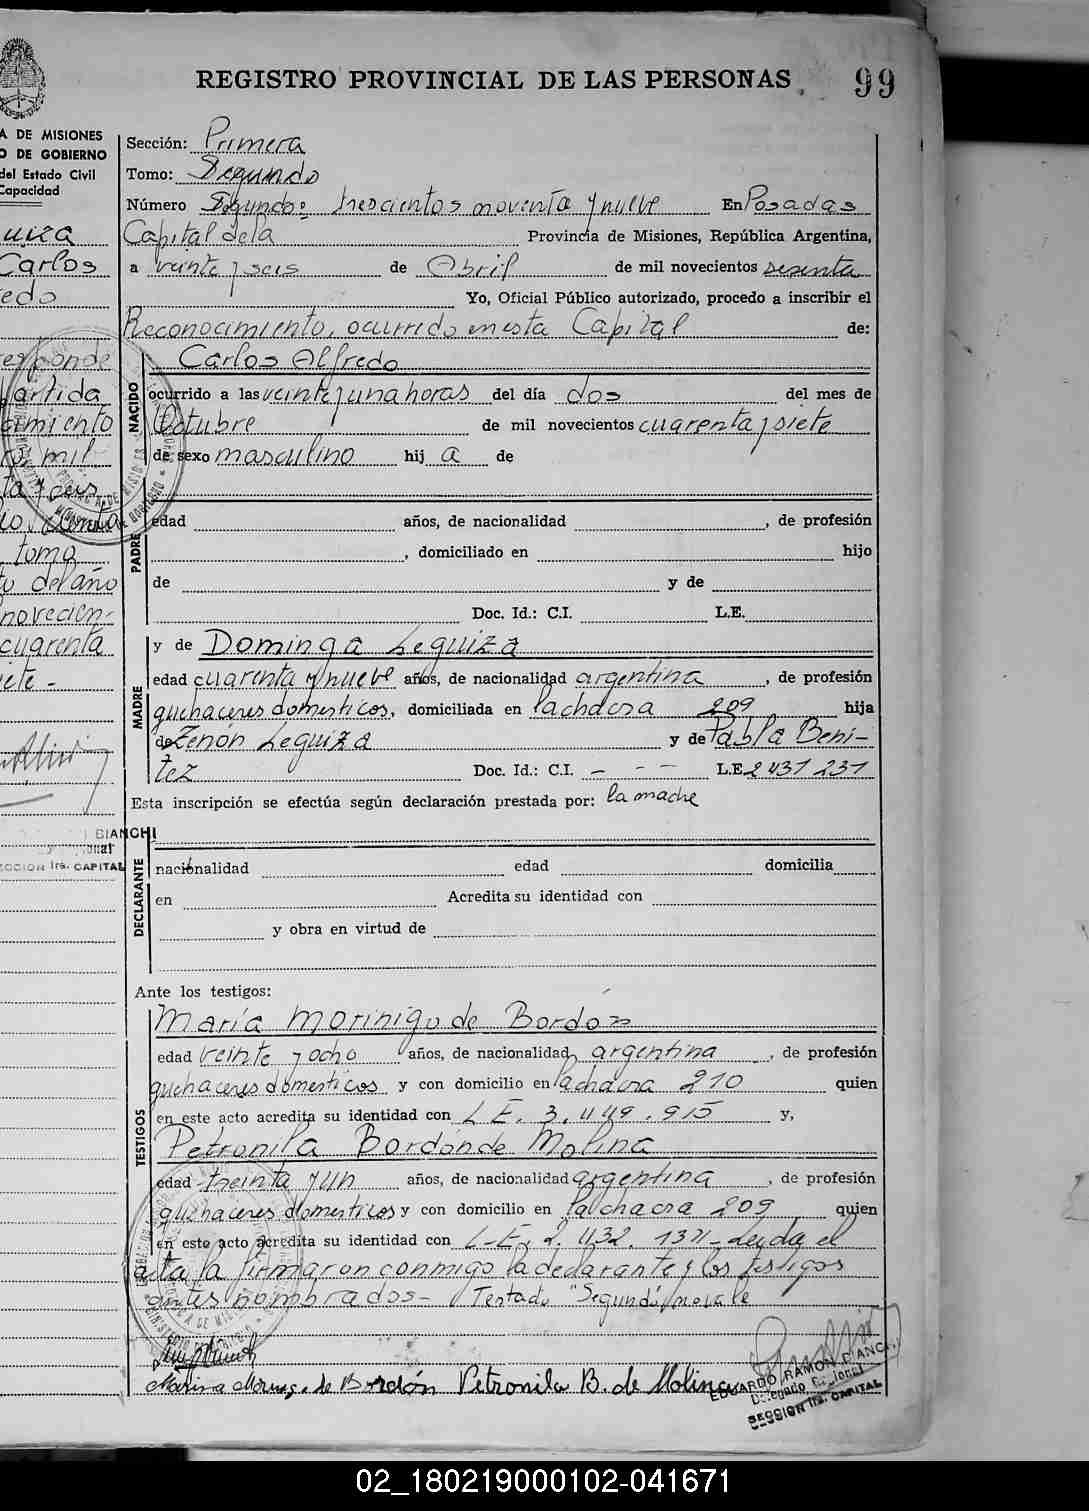 REGISTRO PROVINCIAL DE LAS PERSONAS 99
A DE MISIONES
O DE GOBIERNO
del Estado Civil
Capacidad
uiza
Carlos
edo
esponde
artida
cimiento
mil
ta y seis
toma
to del año
novecien-
cuarenta
iete -
BIANCHI
SECCION 1ra. CAPITAL
Sección: Primera
Tomo: Segundo
Número Segundo: trescientos noventa y nueve En Posadas
Capital de la Provincia de Misiones, República Argentina,
a veinte y seis de Abril de mil novecientos sesenta
Yo, Oficial Público autorizado, procedo a inscribir el
Reconocimiento, ocurrido en esta Capital de:
Carlos Alfredo
NACIDO
ocurrido a las veinte y una horas del día dos del mes de
Octubre de mil novecientos cuarenta y siete
de sexo masculino hij o de
PADRE
edad años, de nacionalidad , de profesión
, domiciliado en hijo
de y de
Doc. Id.: C.I. L.E.
MADRE
y de Dominga Leguiza
edad cuarenta y nueve años, de nacionalidad argentina , de profesión
quehaceres domesticos, domiciliada en la chacra 209 hija
de Zenón Leguiza y de Pabla Beni-
tez Doc. Id.: C.I. - - - L.E. 2431231
Esta inscripción se efectúa según declaración prestada por: la madre
DECLARANTE
nacionalidad edad domicilia
en Acredita su identidad con
y obra en virtud de
Ante los testigos:
TESTIGOS
María Morinigo de Bordón
edad veinte y ocho años, de nacionalidad argentina , de profesión
quehaceres domesticos y con domicilio en la chacra 210 quien
en este acto acredita su identidad con L E. 3.449.915 y,
Petronila Bordón de Molina
edad treinta y un años, de nacionalidad argentina , de profesión
quehaceres domesticos y con domicilio en la chacra 209 quien
en este acto acredita su identidad con L-E. 2.432. Leyda el
acta la firmaron conmigo la declarante y los testigos
antes nombrados- Testado "Segundo" no vale
de Bordón Petronila B. de Molina
EDUARDO RAMON BIANCHI
Delegado Regional
SECCION 1ra. CAPITAL
02_180219000102-041671